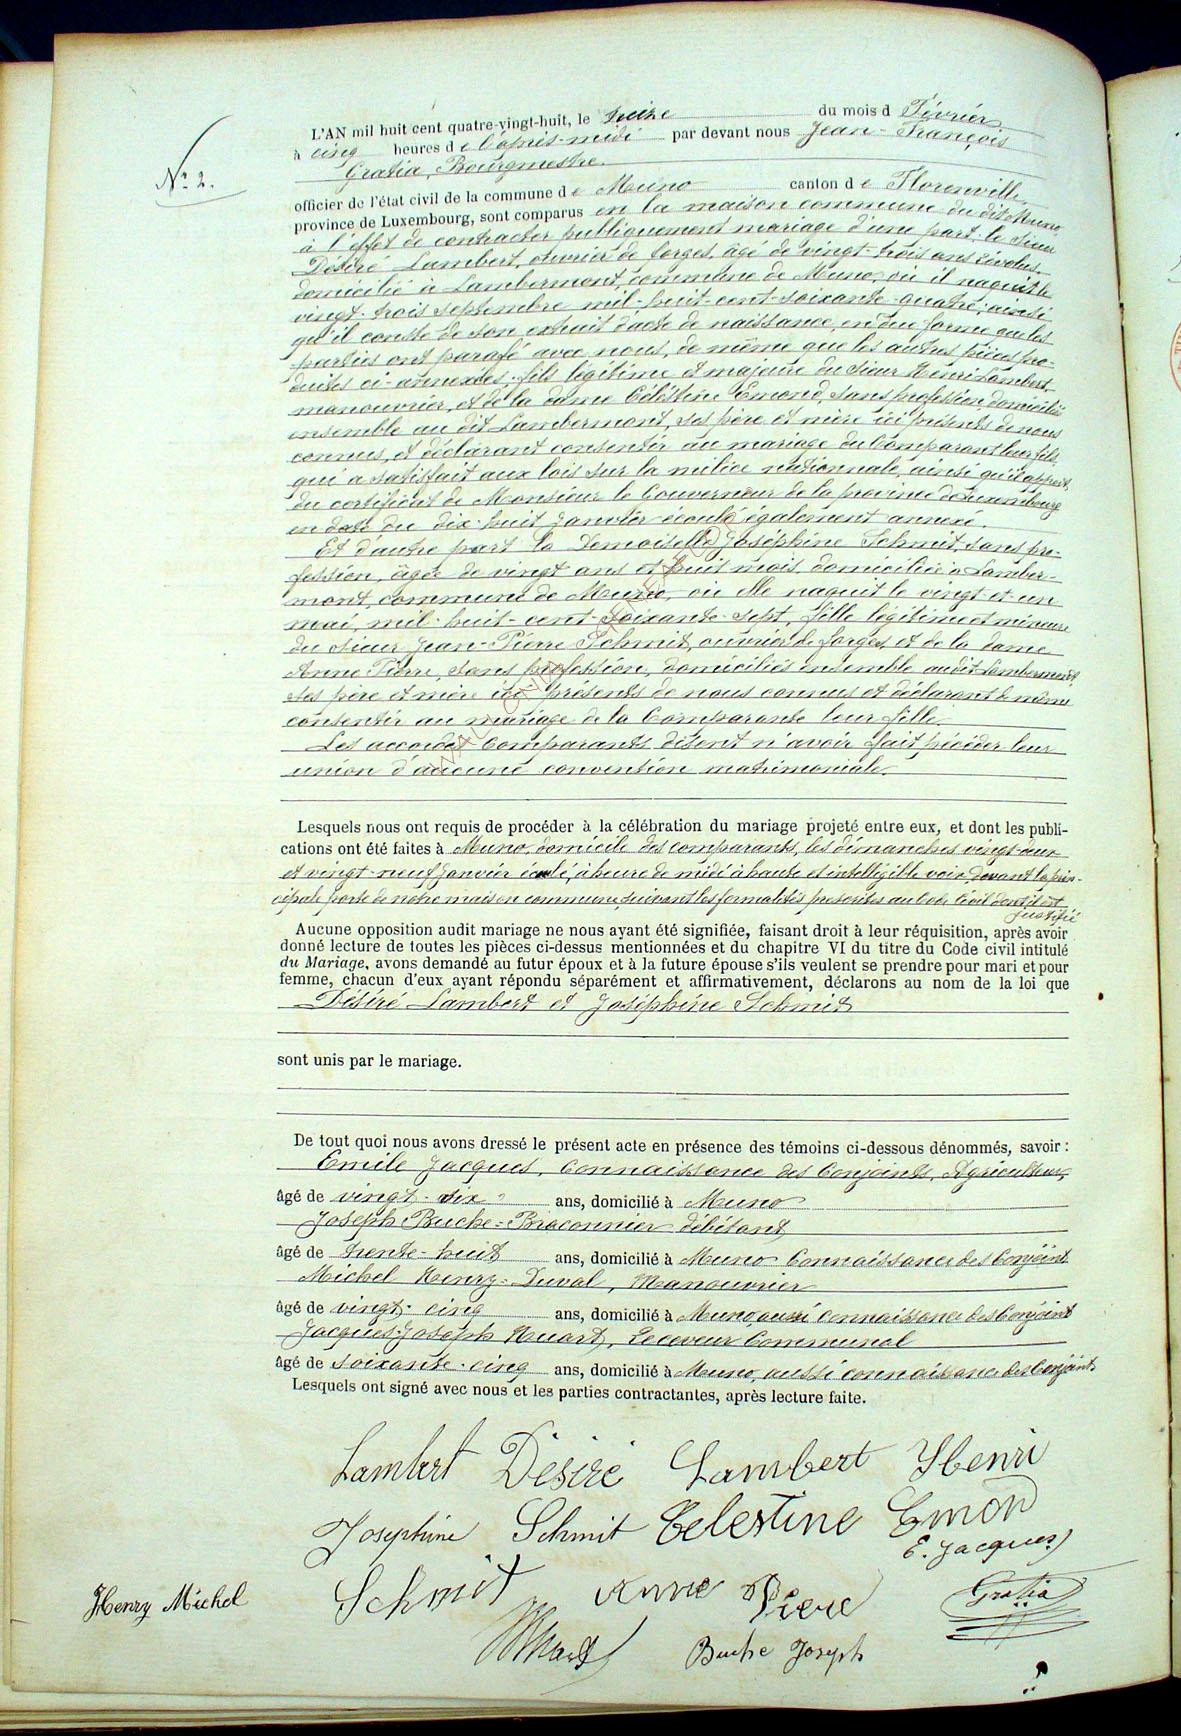 N° 2.
L'AN mil huit cent quatre-vingt-huit, le seize du mois d Février
à cinq heures de l'après-midi par devant nous Jean-François
Gratia, Bourgmestre.
officier de l'état civil de la commune de Muno canton de Florenville
province de Luxembourg, sont comparus en la maison commune du dit Muno
à l'effet de contracter publiquement mariage d'une part, le Sieur
Désiré Lambert, ouvrier de forges, âgé de vingt-trois ans révolus
domicilié à Lambermont, commune de Muno, où il naquit le
vingt-trois septembre mil-huit-cent-soixante-quatre, ainsi
qu'il conste de son extrait d'acte de naissance, en due forme que les
parties ont parafé avec nous, de même que les autres pièces pro-
duites ci-annexées; fils légitime et majeure du sieur Henri Lambert
manouvrier, et de la dame Céléstine Emond, sans profession, domiciliés
ensemble au dit Lambermont, ses père et mère ici présents de nous
connus, et déclarant consentir au mariage du Comparant leur fils,
qui a satisfait aux lois sur la milice nationnale, ainsi qu'il appert
du certificat de Monsieur le Gouverneur de la province de Luxembourg
en date du dix-huit Janvier écoulé également annexé.
Et d'autre part la Demoiselle Joséphine Schmit, sans pro-
fession, âgée de vingt ans et huit mois, domiciliée à Lamber-
mont, commune de Muno, où elle naquit le vingt-et-un
mai, mil-huit-cent-soixante-sept, fille légitime et mineure
du sieur Jean-Pierre Schmit, ouvrier de forges, et de la dame
Anne Pierre, sans profession, domiciliés ensemble audit Lambermont,
ses père et mère ici présents de nous connus et déclarant de même
consentir au mariage de la Comparante leur fille.
Les accordés Comparants disent n'avoir fait précéder leur
union d'aucune convention matrimoniale.
Lesquels nous ont requis de procéder à la célébration du mariage projeté entre eux, et dont les publi-
cations ont été faites à Muno, domicile des comparants, les dimanches vingt-deux
et vingt-neuf Janvier écoulé, à heure de midi à haute et intelligible voix, devant la prin-
cipale porte de notre maison commune, suivant les formalités prescrites au Code Civil dont il est
justifié
Aucune opposition audit mariage ne nous ayant été signifiée, faisant droit à leur réquisition, après avoir
donné lecture de toutes les pièces ci-dessus mentionnées et du chapitre VI du titre du Code civil intitulé
du Mariage, avons demandé au futur époux et à la future épouse s'ils veulent se prendre pour mari et pour
femme, chacun d'eux ayant répondu séparément et affirmativement, déclarons au nom de la loi que
Désiré Lambert et Joséphine Schmit
sont unis par le mariage.
De tout quoi nous avons dressé le présent acte en présence des témoins ci-dessous dénommés, savoir :
Emile Jacques, Connaissance des Conjoints, Agriculteur,
âgé de vingt-six ans, domicilié à Muno
Joseph Buche-Braconnier débitant
âgé de trente-huit ans, domicilié à Muno Connaissance des Conjoint
Michel Henry-Duval, Manouvrier
âgé de vingt-cinq ans, domicilié à Muno, aussi connaissance des Conjoint
Jacques-Joseph Huart, Receveur Communal
âgé de soixante-cinq ans, domicilié à Muno, aussi connaissance des Conjoint
Lesquels ont signé avec nous et les parties contractantes, après lecture faite.
Lambert Désiré Lambert Henri
Josephine Schmit Celestine Emon
E. Jacques
Henry Michel Schmit Anne Piere Gratia
Huart Buche Joseph